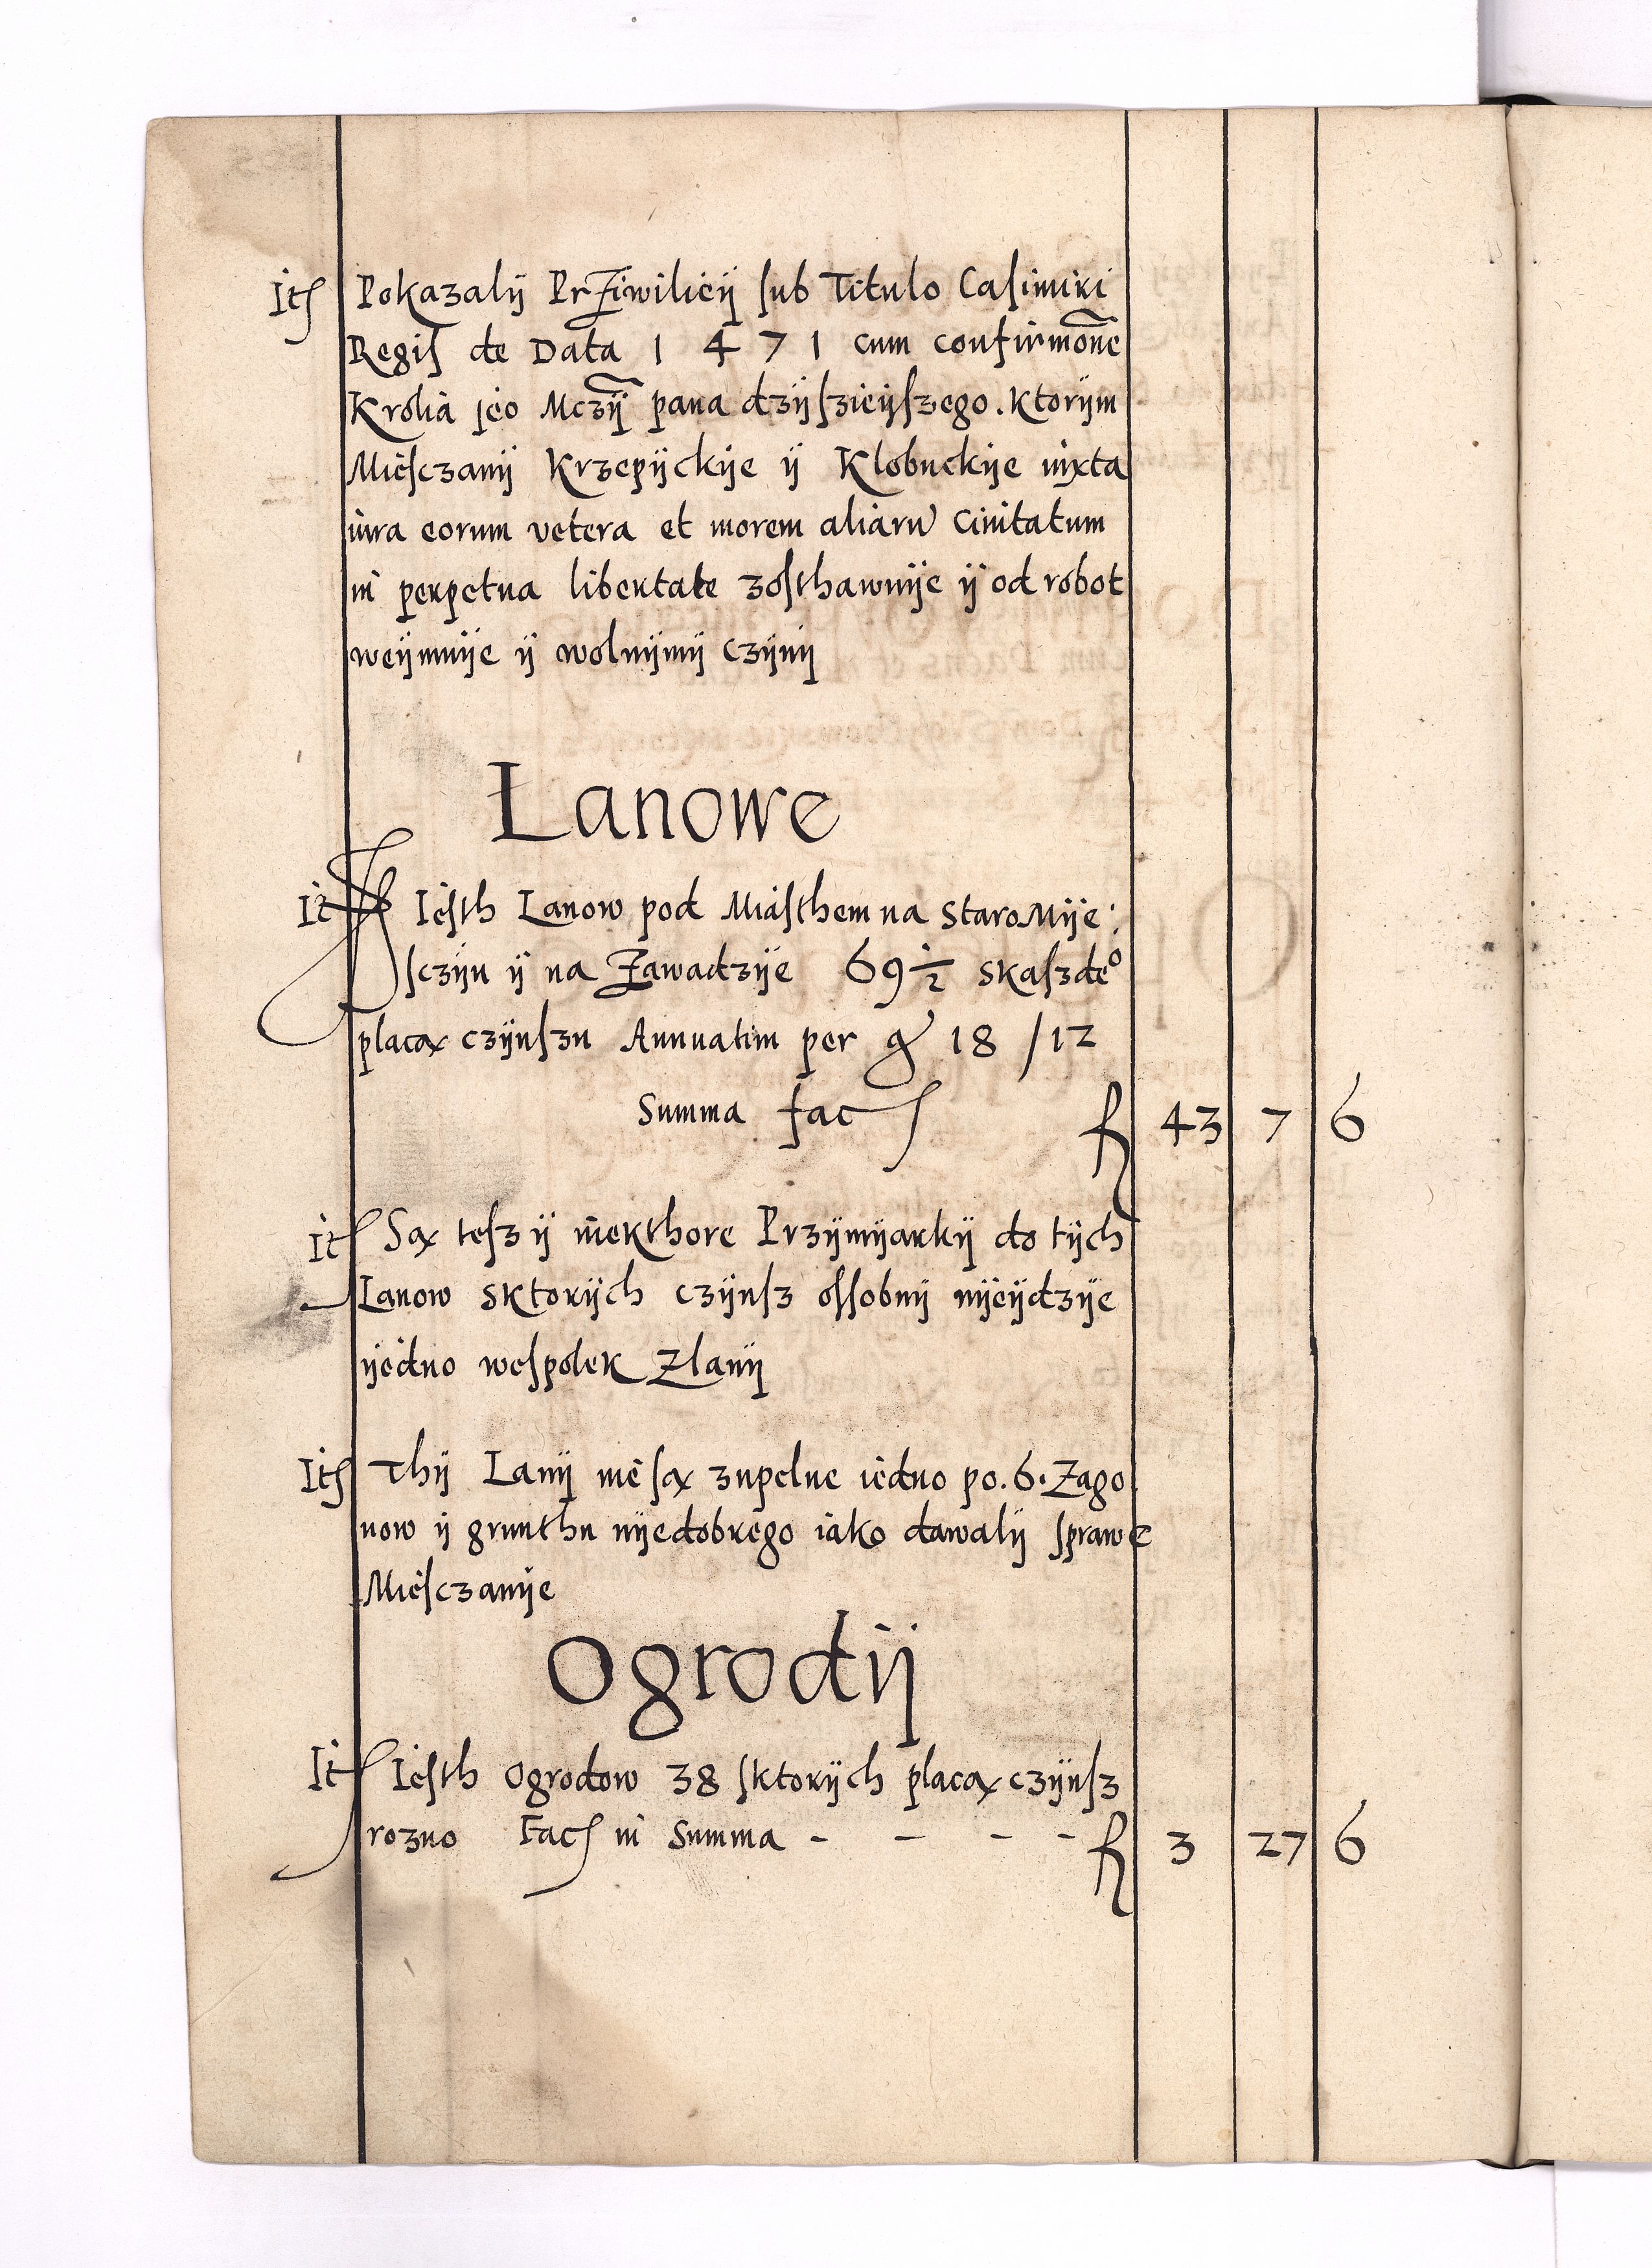 Itſ Pokazalÿ Prziwilieÿ ſub Titulo Caſimiri
Regiſ de Data 1 4 7 1 cum confirmo͞ne
Krolia jeo Mczÿ pana dzÿſzieÿſzego. Ktorÿm
Mieſczanÿ Krzepÿckÿe ÿ Klobuckÿe iuxta
iura eorum vetera et morem aliaru Ciuitatum
in perpetua libertate zoſthawuÿe ÿ od robot
weÿmuÿe ÿ wolnÿmÿ czÿnÿ
Lanowe
It Ieſth Lanow pod Miaſthem na StaroMÿe:
ſczÿu ÿ na Zawadzÿe 69 ½ Skaſzdeº
placax czÿnſzu Annuatim per g 18 /12
Summa facſ f 43 7 6
It Sax teſz ÿ niekthore Przÿmÿarkÿ do tÿch
Lanow Sktorÿch czÿnſz oſſobnÿ nÿeÿdzÿe
ÿedno weſpolek Zlanÿ
Itſ Thÿ Lanÿ nie ſax zupelne iedno po. 6. Zago
now ÿ grunthu nÿedobrego iako dawalÿ ſprawe
Mieſczanÿe
Ogrodÿ
It Ieſth Ogrodow 38 ſktorÿch placax czÿnſz
rozno Facſ in Summa - - - - f 3 27 6